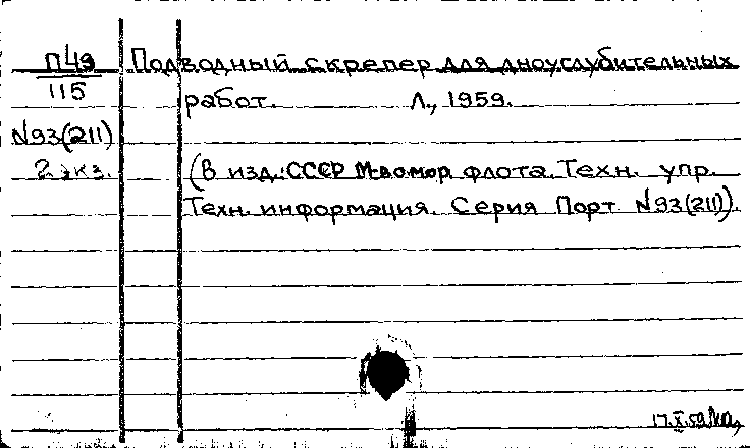 П49 Подводный скрепер для дноуглубительных
115 работ. Л., 1959.
N93(211)
2 экз. (В изд.: СССР М-во мор флота. Техн. упр.
Техн. информация. Серия Порт N93(211)).
17.X.59